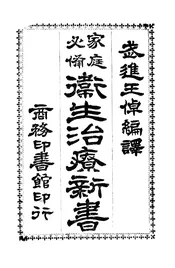 武進王倬編譯
家庭
必備
衛生治療新書
商務印書館印行